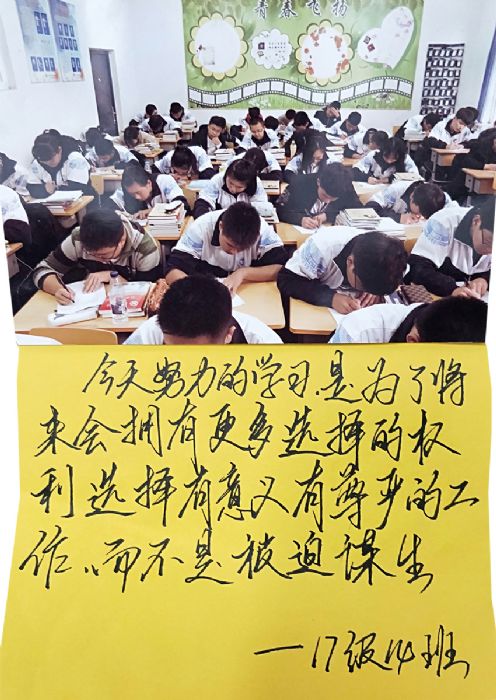 青春飞扬
今天努力的学习.是为了将
来会拥有更多选择的权
利选择有意义有尊严的工
作.而不是被迫谋生
—17级14班